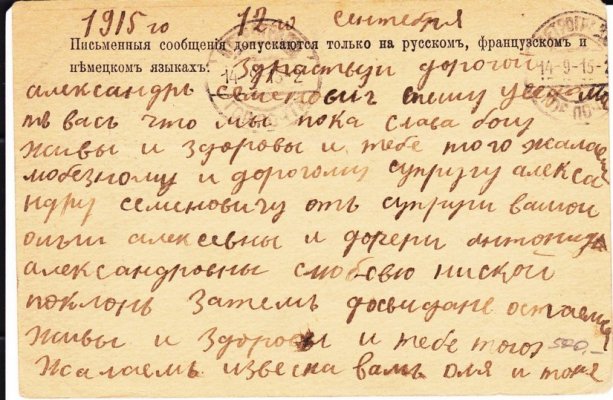 1915 го 12 го сентебря
Письменныя сообщенія допускаются только на русскомъ, французскомъ и
нѣмецкомъ языкахъ. Здраствуй дорогой
александръ семеновичъ спешу уведоми
ть васъ что мы пока слава богу
живы и здоровы и тебе того жалаем
любезному и дорогому супругу алекса
ндру семеновичу отъ супруги вашои
ольги алексевны и дочери антонины
александровны слюбовю ниской
поклонъ Затемъ досвидане остаемся
живы и здоровы и тебе тогоэ 500,-
жалаемъ извесна вамъ оля и тоня
14-9-15